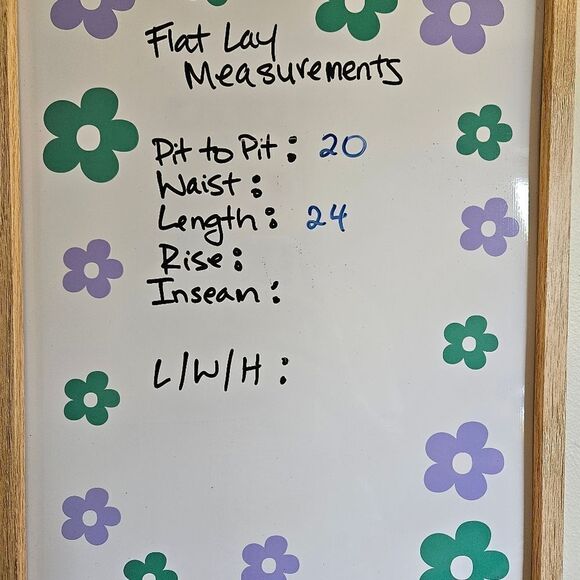 Flat Lay
Measurements
Pit to Pit: 20
Waist:
Length: 24
Rise:
Inseam:
L/W/H: